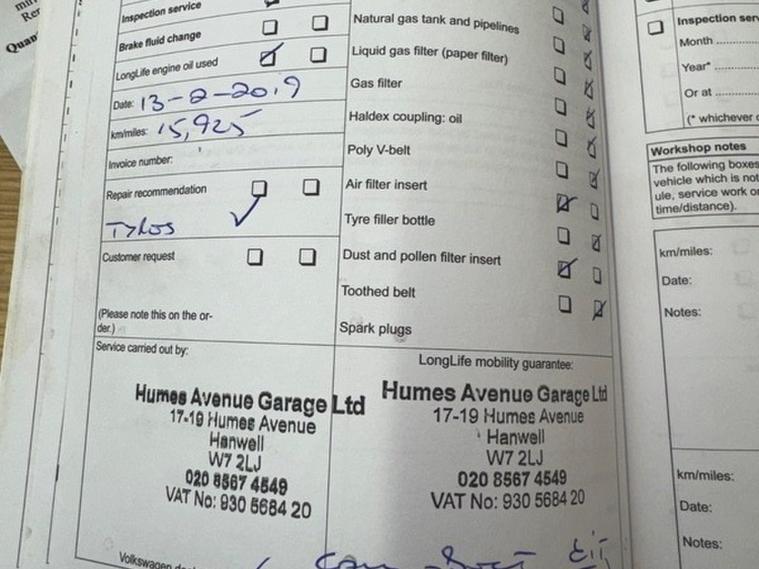 Inspection service
Brake fluid change
LongLife engine oil used
Date: 13-2-2019
km/miles: 15,925
Invoice number:
Repair recommendation
Tyres
Customer request
(Please note this on the or-
der.)
Natural gas tank and pipelines
Liquid gas filter (paper filter)
Gas filter
Haldex coupling: oil
Poly V-belt
Air filter insert
Tyre filler bottle
Dust and pollen filter insert
Toothed belt
Spark plugs
Service carried out by:
Humes Avenue Garage Ltd
17-19 Humes Avenue
Hanwell
W7 2LJ
020 8567 4549
VAT No: 930 5684 20
LongLife mobility guarantee:
Humes Avenue Garage Ltd
17-19 Humes Avenue
Hanwell
W7 2LJ
020 8567 4549
VAT No: 930 5684 20
Volkswagen
Inspection
Month
Year*
Or at
(* whichever
Workshop notes
The following boxes
vehicle which is not
ule, service work o
time/distance).
km/miles:
Date:
Notes:
km/miles:
Date:
Notes: